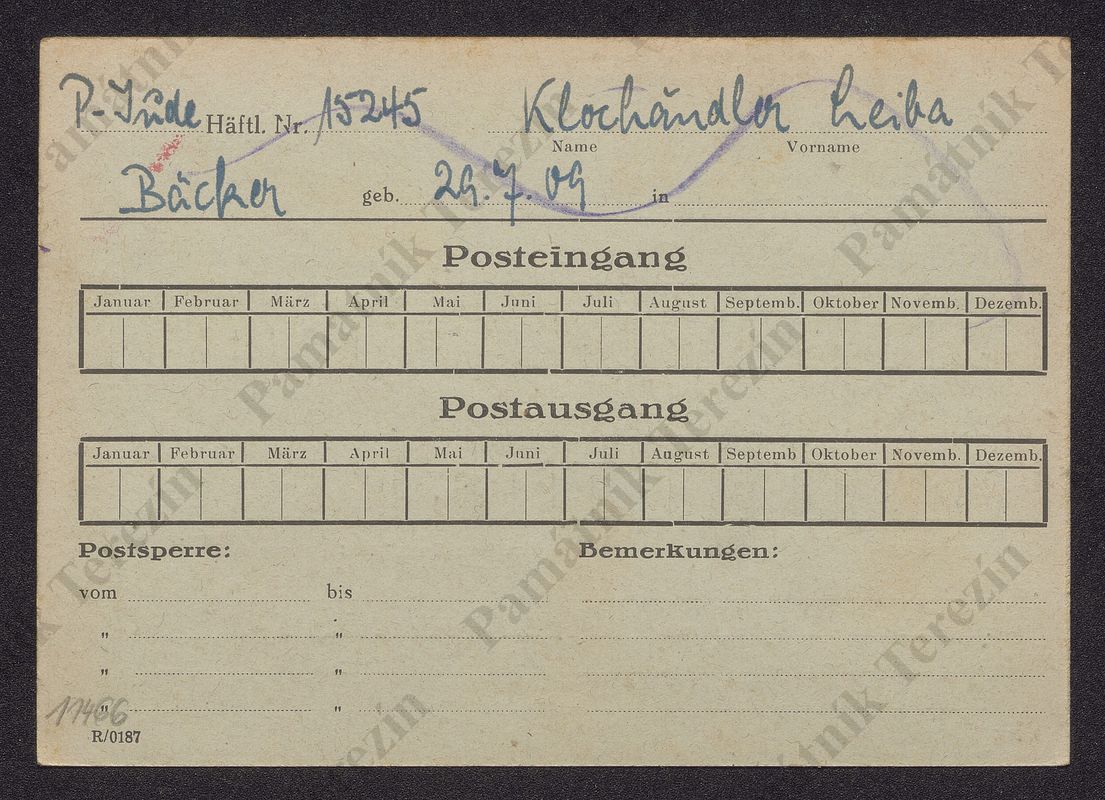 P-Jude Häftl. Nr. 15245 Klochändler Leiba
Name Vorname
Bäcker geb. 29.7.09 in
Posteingang
Januar Februar März April Mai Juni Juli August Septemb. Oktober Novemb. Dezemb.
Postausgang
Januar Februar März April Mai Juni Juli August Septemb Oktober Novemb. Dezemb.
Postsperre: Bemerkungen:
vom bis
" "
" "
" "
11466
R/0187
Památník Terezín